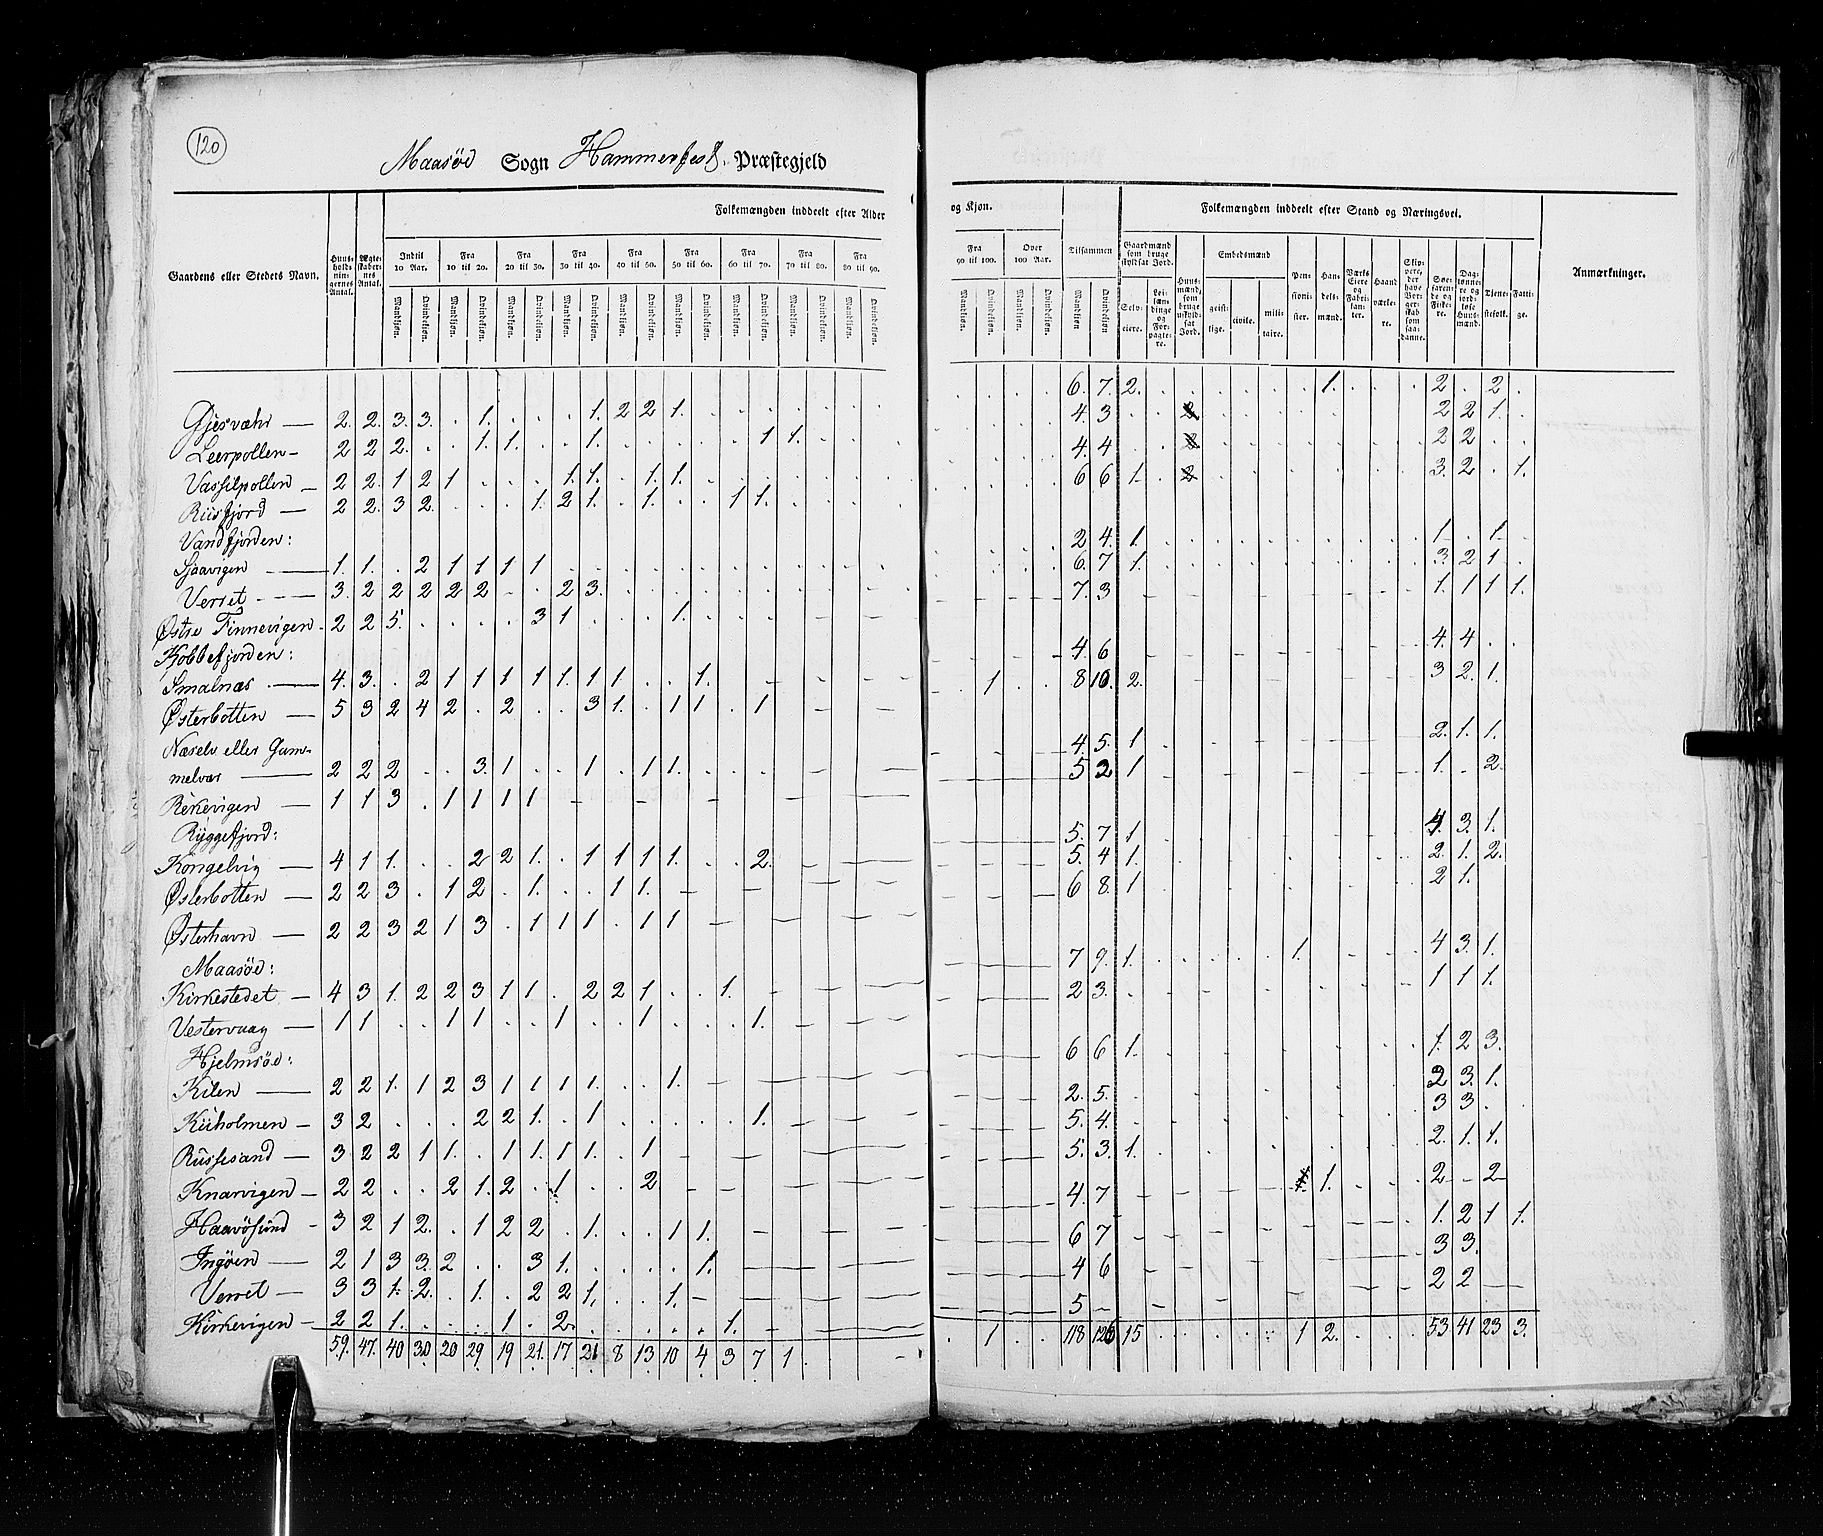 120
Maasøe Sogn Hammerfest Præstegjeld
Folkemængden inddeelt efter Alder
og Kjøn.
Folkemængden inddeelt efter Stand og Næringsvei.
Gaardens eller Stedets Navn.
Huusholdningernes Antal.
Ægteskabernes Antal.
Indtil 10 Aar.
Fra 10 til 20.
Fra 20 til 30.
Fra 30 til 40.
Fra 40 til 50.
Fra 50 til 60.
Fra 60 til 70.
Fra 70 til 80.
Fra 80 til 90.
Fra 90 til 100.
Over 100 Aar.
Tilsammen
Mandkjøn. Qvindekjøn.
Gaardmænd som bruge skyldsat Jord.
Selveiere.
Leilændinge og Forpagtere.
Huusmænd, som bruge uskyldsat Jord.
Embedsmænd
geistlige. civile. militaire.
Pensionister.
Handelsmænd.
Værks Eiere og Fabrikanter.
Haandværkere.
Skippere, der have Borgerskab som saadanne.
Søefarende og Fiskere.
Daglønnere og jordløse Huusmænd.
Tjenestefolk.
Fattige.
Anmærkninger.
Gjesvæhr — 2. 2. 3. 3. . 1. . . . 1. 2 2 1. 6. 7. 2. 1. 2 . 2
Leerpollen 2 2 2. . . 1. 1. . . 1. 1 1. 4. 3 2 2 1.
Vassilpollen 2 2. 1 2 1 . . . 1. 1. . 1. 1. 4. 4 2 2
Riisfjord — 2 2. 3 2. . . . 1. 2 1. . 1. . . 1 1. 6 6 1. 3. 2 . 1.
Vandfjorden:
Sjaavigen 1. 1. . 2 1 1 1 1 1 2 4. 1. 1 . 1.
Verret 3. 2 2 2 2 2 . . 2 3. 6. 7 1. 3. 2 1
Østre Finnevigen 2 2 5. . . . . 3 1 . . . 1. 7. 3 1. 1 1 1.
Kobbefjorden:
Smalnæs 4. 3. . 2 1 1 1 1 1. 1 1 . . 1. 4. 6 4. 4
Østerbotten 5 3 2 4 2 . 2 . . 3 1. . 1 1 . 1 1 8 10. 2. 3 2. 1.
Næselv eller Gammelvær
2 2 2 . . 3. 1 . . 1 . 1 1. 4. 5. 1 2. 1. 1.
Rekevigen 1 1 3 . 1 1 1 1 5 2 1 1. . 2.
Ryggefjord:
Kongelvig 4 1 1. . . 2 2 1. . 1 1 1 1. . . 2. 5. 7 1 4. 3. 1.
Østerbotten 2 2 3 . 1 2 . 1. . . 1 1. 5. 4 1. 2. 1. 2.
Østerhavn 2 2 3 2 1 3 . 1 1 1 . 1 1 6 8. 1 2 1.
Maasøe:
Kirkestedet 4 3 1. 2 2 3 1 1 . 2 2 1 . . 1. 7 9. 1. 1. 4 3. 1.
Vestervaag 1 1 . . 1 1 . . 1 . . 1 . . . 1. 2 3. 1 1 1.
Hjelmsøe:
Kilen 2 2 1. 1 2 3 1 1 1 1. . . 1. 6 6 1. 1. 2 3.
Kiiholmen 3 2 . . . 2 2 1. . 1 1. 2. 5. 2 3. 1.
Russesand 3 2 2 1 1. . 1 1. 1 1. . 1 5. 4. 3 3.
Knarvigen 2 2 . . 2 1. 2 . 1 . . 2 5. 3. 1. 2. 1. 1.
Haavøsund 3 2 1 2. . 1 2 2 . 1. . . 1 1. 4. 7 1. 2 2
Ingøen 2 1 3 3. 2 . . 3 1. . . . . 1. 6 7 1. 2 1 1.
Verret 3 3 1. 2. . 1. . 2 2 1. . . 1. 4 6 3 3.
Kirkevigen 2 2 1. . . . 1 . 2. 1. 5 2 2
59. 47. 40 30 20 29. 19 21. 17 21 8 13 10 4 3 7 1 1 118 15 1 2. 53 41 23 3.